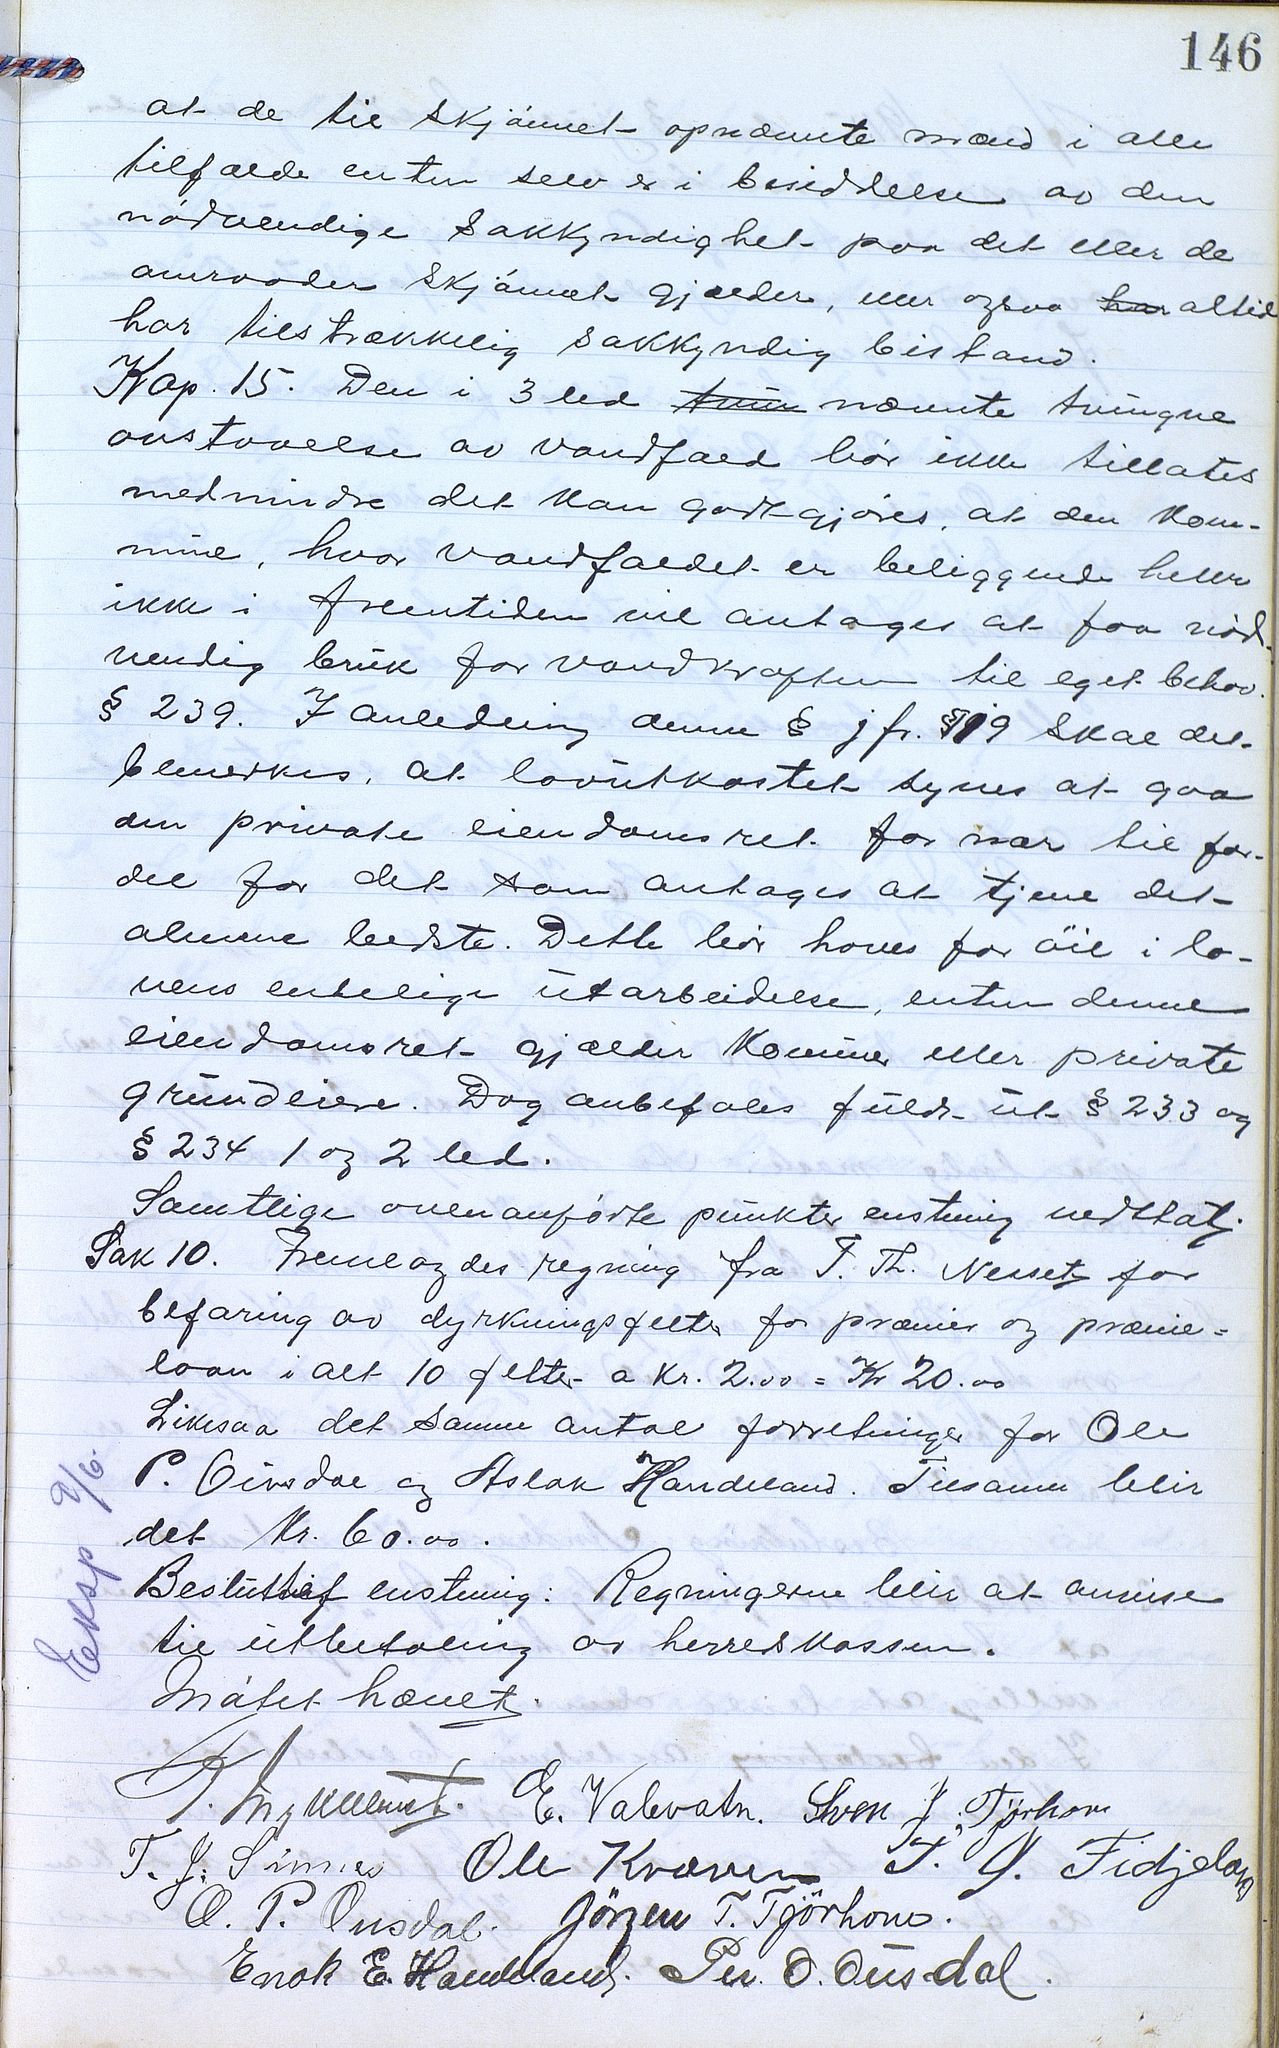 146
at de til skjønnet opnævnte mænd i alle
tilfælde enten selv er i besiddelse av den
nødvendige sakkyndighet paa det eller de
omraader skjønnet gjælder, eller ogsaa har altid
har tilstrækkelig sakkyndig bistand.
Kap. 15. Den i 3 led nævnte tvungne
avstaaelse av vandfald bør ikke tillates
medmindre det kan godtgjøres, at den kom-
mune, hvor vandfaldet er beliggende heller
ikke i fremtiden vil antages at faa nød-
vendig bruk for vandkraften til eget behov.
§ 239. I anledning denne § jfr. § 119 skal det
bemerkes, at lovutkastet synes at gaa
den private eiendomsret for nær til for-
del for det som antages at tjene det
almene bedste. Dette bør haves for øie i lo-
vens endelige utarbeidelse, enten denne
eiendomsret gjælder kommuner eller private
grundeiere. Dog anbefales fuldt ut § 233 og
§ 234 1 og 2 led.
Samtlige ovenanførte punkter enstemmig vedtat.
Sak 10. Fremlagdes regning fra T. Th. Nesset for
befaring av dyrkningsfelter for præmier og præmie=
laan i alt 10 felter a kr. 2.00 = Kr 20.00
Likesaa det samme antal forretninger for Ole
P. Ousdal og Aslak Handeland. Tilsammen blir
det Kr. 60.00.
Eksp 9/6.
Besluttet enstemmig: Regningerne blir at anvise
til utbetaling av herredskassen.
Møtet hævet.
E. Valevatn. Sven J. Tjørhom
T. J. Sinnes Ole Kvæven T. J. Fidjeland
O. P. Ousdal. Jörgen T. Tjörhom.
Enok E. Handeland. Per. O. Ousdal.